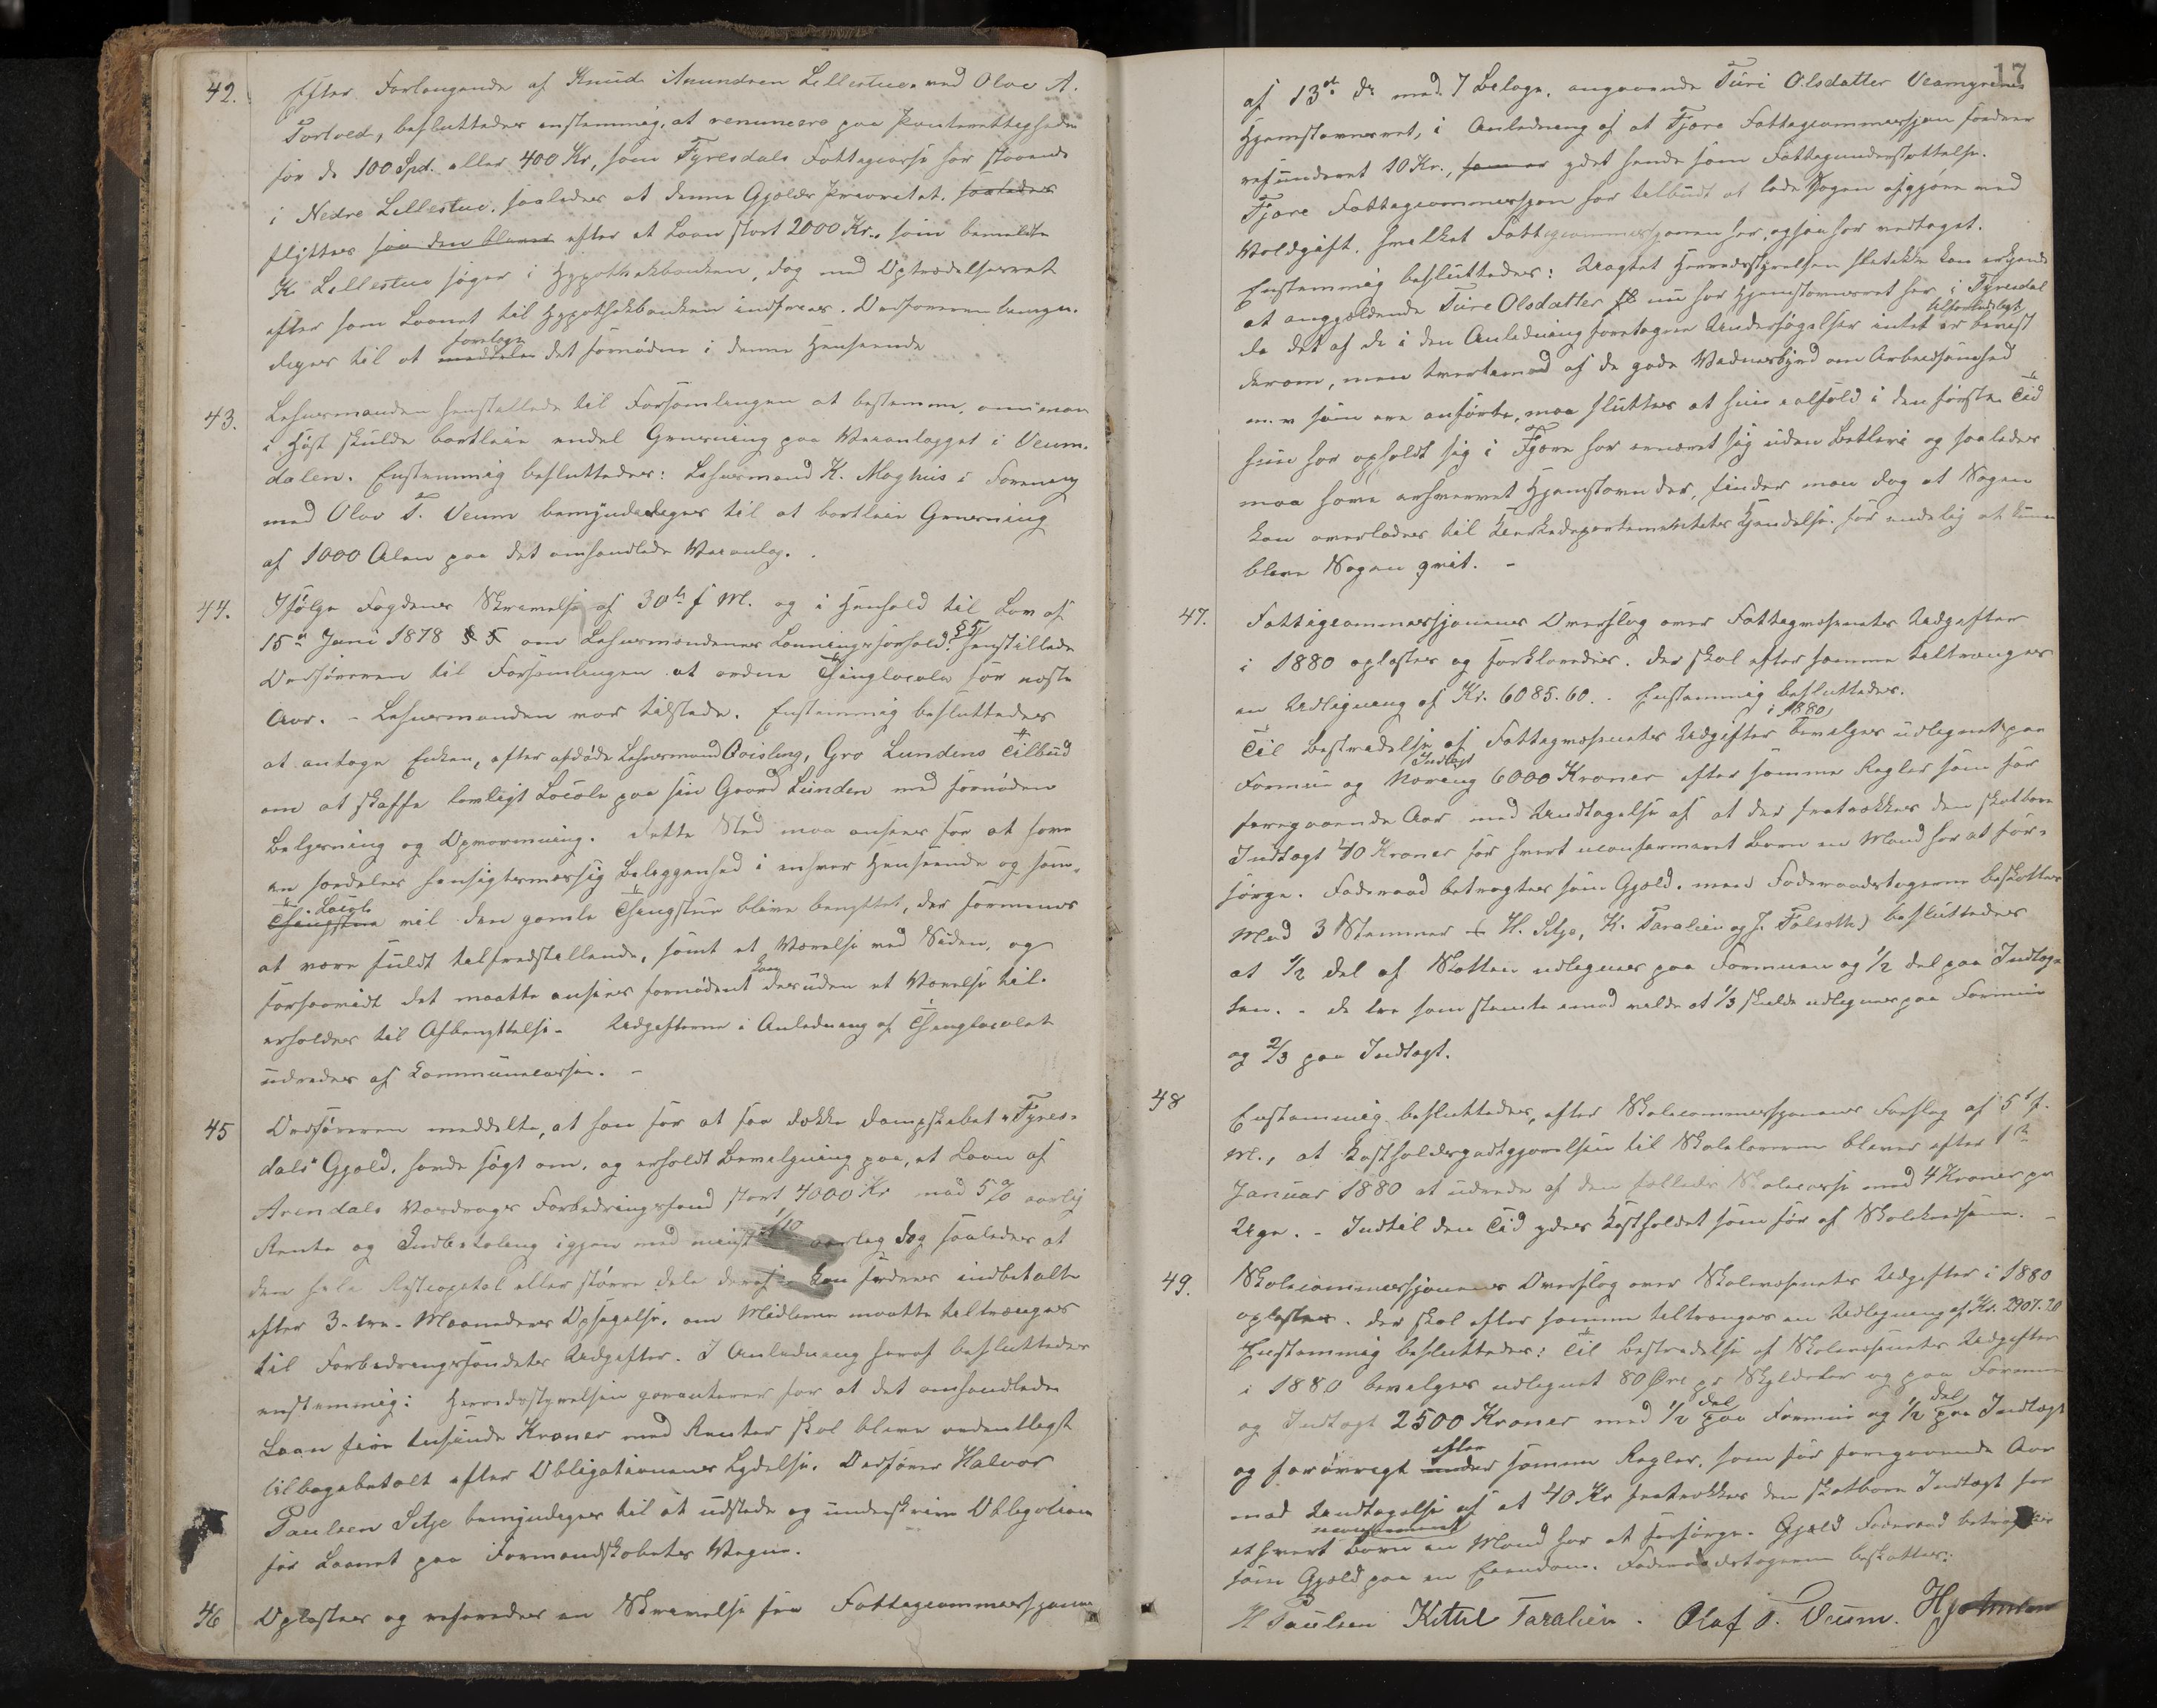 42. Efter Forlangende af Knud Aanundsen Lillestue, ved Olav A.
Tortved, besluttedes enstemmig, at renuncere paa Panterettigheden
for de 100 Spd. eller 400 Kr., som Fyresdals Fattigcasse har staaende
i Nedre Lillestue, saaledes at denne Gjælds Prioritet, saaledes
flyttes saa den bliver efter et Laan stort 2000 Kr., som bemeldte
K. Lillestue søger i Hypothekbanken, dog med Optrædelsesret
efter som Laanet til Hypothekbanken indfries. Ordføreren bemyn-
diges til at meddele foretage det fornødne i denne Henseende
43. Lehnsmanden henstillede til Forsamlingen at bestemme, om man
i Høst skulde bortleie endel Grusning paa Veianlægget i Veum-
dalen. Enstemmig besluttedes: Lehnsmand K. Moghus i Forening
med Olav T. Veum bemyndediges til at bortleie Grusning
af 1000 Alen paa det omhandlede Veianlæg.
44. Ifølge Fogdens Skrivelse af 30te f. M. og i Henhold til Lov af
15de Juni 1878 § 5 om Lehnsmændenes Lønningsforhold § 5, henstillede
Ordføreren til Forsamlingen at ordne Thinglocale for næste
Aar. - Lehnsmanden var tilstede. Enstemmig besluttedes
at antage Enken, efter afdøde Lehnsmand Qvisling, Gro Lundens Tilbud
om at skaffe lovligt Locale paa sin Gaard Lunden med fornøden
Belysning og Opvarmning. Dette Sted maa ansees for at have
en særdeles hensigtsmæssig Beliggenhed i enhver Henseende og som
Thingstue Local vil den gamle Thingstue blive benyttet, der formenes
at være fuldt tilfredsstillende, samt et Værelse ved Siden, og
forsaavidt det maatte ansees fornødent kan desuden et Værelse til
erholdes til Afbenyttelse. Udgifterne i Anledning af Thinglocalet
udredes af Communecassen. -
45 Ordføreren meddelte, at han for at faa dække Dampskibet "Fyres-
dals" Gjæld, havde søgt om, og erholdt Bevilgning paa, et Laan af
Arendals Vasdrags Forbedringsfond stort 4000 Kr mod 5 % aarlig
Rente og Indbetaling igjen med mindst 1/10 aarlig dog saaledes at
den hele Restcapital eller større dele deraf kan fordres indbetalte
efter 3 - tre - Maaneders Opsigelse, om Midlerne maatte tiltrænges
til Forbedringsfondets Udgifter. I Anledning heraf besluttedes
enstemmig: Herredsstyrelsen garanterer for at det omhandlede
Laan fire tusinde Kroner med Renter skal blive ordentligst
tilbagebetalt efter Obligationens Lydelse. Ordfører Halvor
Paulsen Sitje bemyndiges til at udstede og underskrive Obligation
for Laanet paa Formandskabets Vegne.
46 Oplæstes og refereredes en Skrivelse fra Fattigcommissionen
17
af 13de ds med 7 Bilage, angaaende Turi Olsdatter Veamyrenes
Hjemstavnsret, i Anledning af at Fjære Fattigcommission fordrer
refunderet 10 Kr., som er ydet hende som Fattigunderstøttelse.
Fjære Fattigcommission har tilbudt at lade Sagen afgjøre ved
Voldgift, hvilket Fattigcommissionen her, ogsaa har vedtaget.
Enstemmig besluttedes: Uagtet Herredsstyrelsen slet ikke kan erkjende
at angjældende Turi Olsdatter nu har Hjemstavnsret her i Fyresdal
da det af de i den Anledning foretagne Undersøgelser intet tilforladeligt er bevist
derom, men tvertimod af de gode Vidnesbyrd om Arbeidsomhed
m. v som ere anførte, maa sluttes at hun ialfald i den første Tid
hun har opholdt sig i Fjære har ernæret sig uden Betleri og saaledes
maa have erhvervet Hjemstavn der, finder man dog at Sagen
kan overlades til Kirkedepartementets Kjendelse for endelig at kunne
blive Sagen qvit. -
47. Fattigcommissionens Overslag over Fattigvæsenets Udgifter
i 1880 oplæstes og forklaredes. Der skal efter samme tiltrænges
en Udligning af Kr. 6085.60. Enstemmig besluttedes.
Til Bestridelse af Fattigvæsenets Udgifter i 1880, bevilges udlignet paa
Formue og Indtægt Næring 6000 Kroner efter samme Regler som for
foregaaende Aar med Undtagelse af at der fratrækkes den skatbare
Indtægt 40 Kroner for hvert uconfirmeret Barn en Mand har at for-
sørge. Føderaad betragtes som Gjæld, men Føderaadstagerne beskattes
Med 3 Stemmer (H. Sitje, K. Taralien og J. Folsæth) besluttedes
at 1/2 del af Skatten udlignes paa Formuen og 1/2 del paa Indtæg-
ten. - De tre som stemte imod vilde at 1/3 skulde udlignes paa Formue
og 2/3 paa Indtægt.
48 Enstemmig besluttedes, efter Skolecommissionens Forslag af 5te f.
M., at Kostholdsgodtgjørelsen til Skolelærerne bliver efter 1ste
Januar 1880 at udrede af den fælleds Skolecasse med 4 Kroner pr
Uge. - Indtil den Tid ydes Kostholdet som før af Skolekredsene. -
49. Skolecommissionens Overslag over Skolevæsenets Udgifter i 1880
oplæstes. Der skal efter samme tiltrænges en Udligning af Kr. 2907.20
Enstemmig besluttedes: Til Bestridelse af Skolevæsenets Udgifter
i 1880 bevilges udlignet 80 Øre pr Skylddaler og paa Formue
og Indtægt 2500 Kroner med 1/2 del paa Formue og 1/2 del paa Indtægt
og forøvrigt under efter samme Regler, som for foregaaende Aar
med Undtagelse af at 40 Kr fratrækkes den skatbare Indtægt for
ethvert uconfirmeret Barn en Mand har at forsørge. Gjæld Føderaad betragtes
som Gjæld paa en Eiendom. Føderaadstagerne beskattes.
H Paulsen Kittil Taralien. Olaf T. Veum.